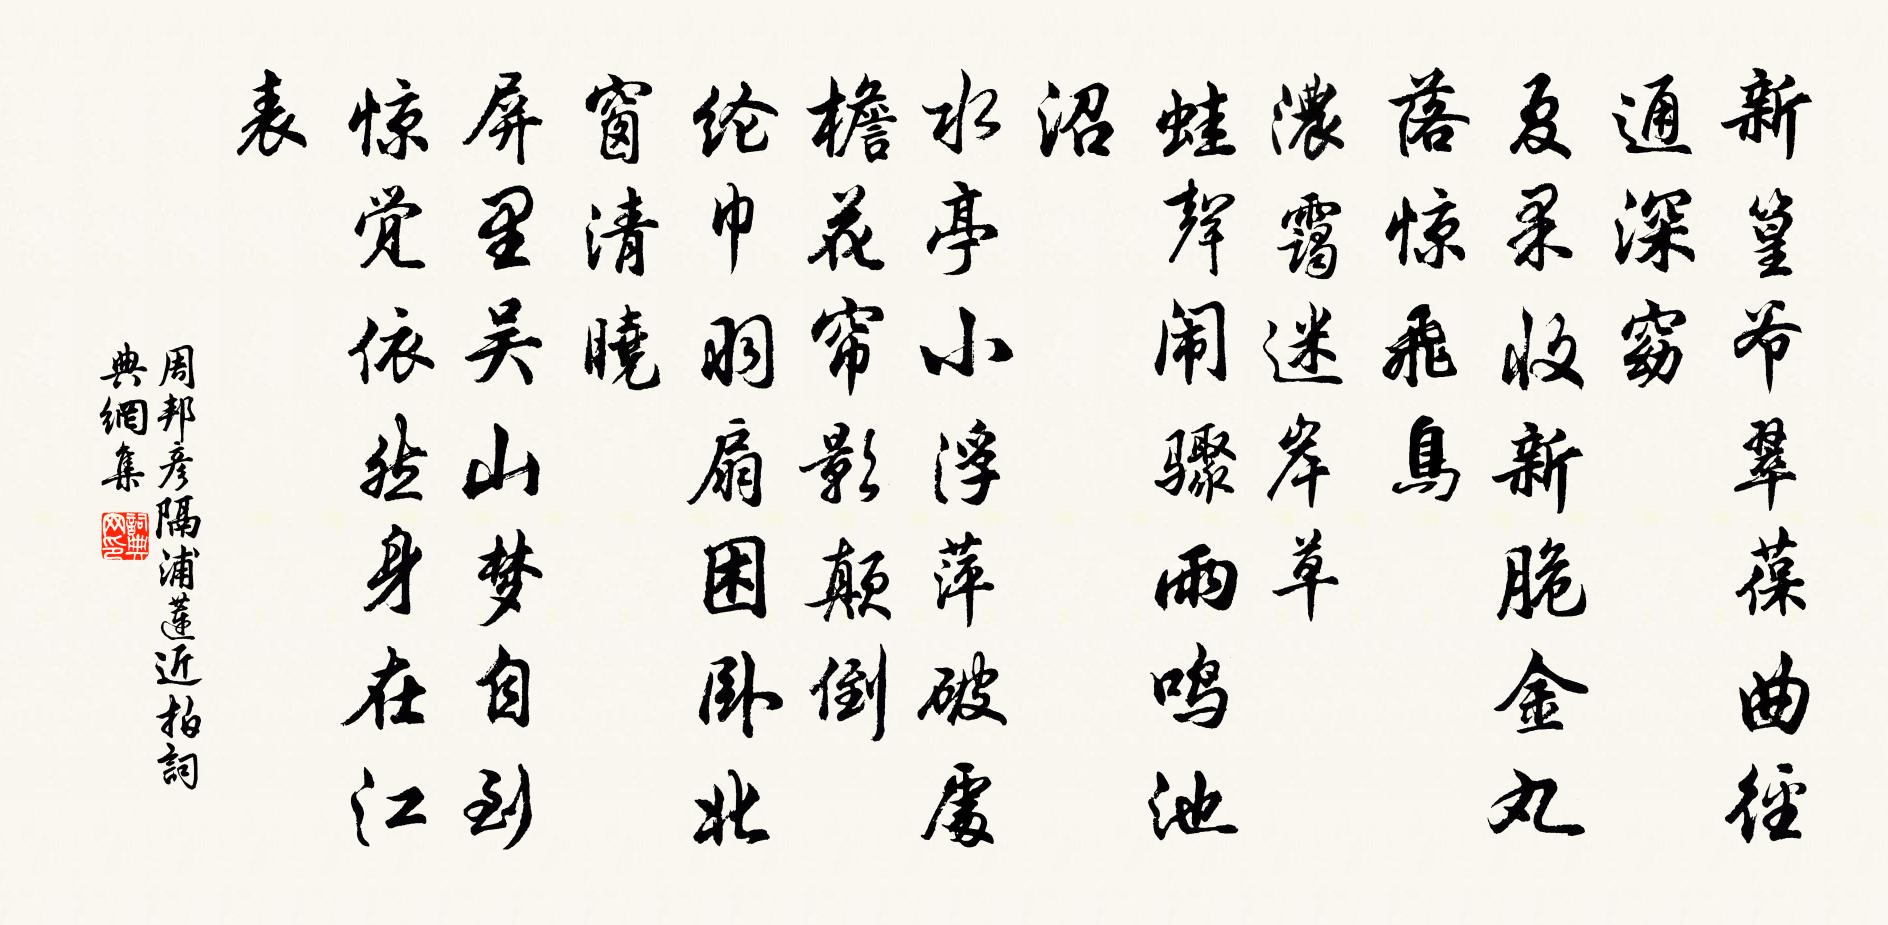 新篁爷翠葆曲徑
通深窈
夏果收新脆金丸
落惊飛鳥
濃靄迷岸草
蛙聲闹骤雨鸣池
沼
水亭小浮萍破處
檐花帘影颠倒
纶巾羽扇困卧北
窗清曉
屏里吴山梦自到
惊觉依然身在江
表
周邦彦隔浦蓮近拍詞
典網集
詞典网印